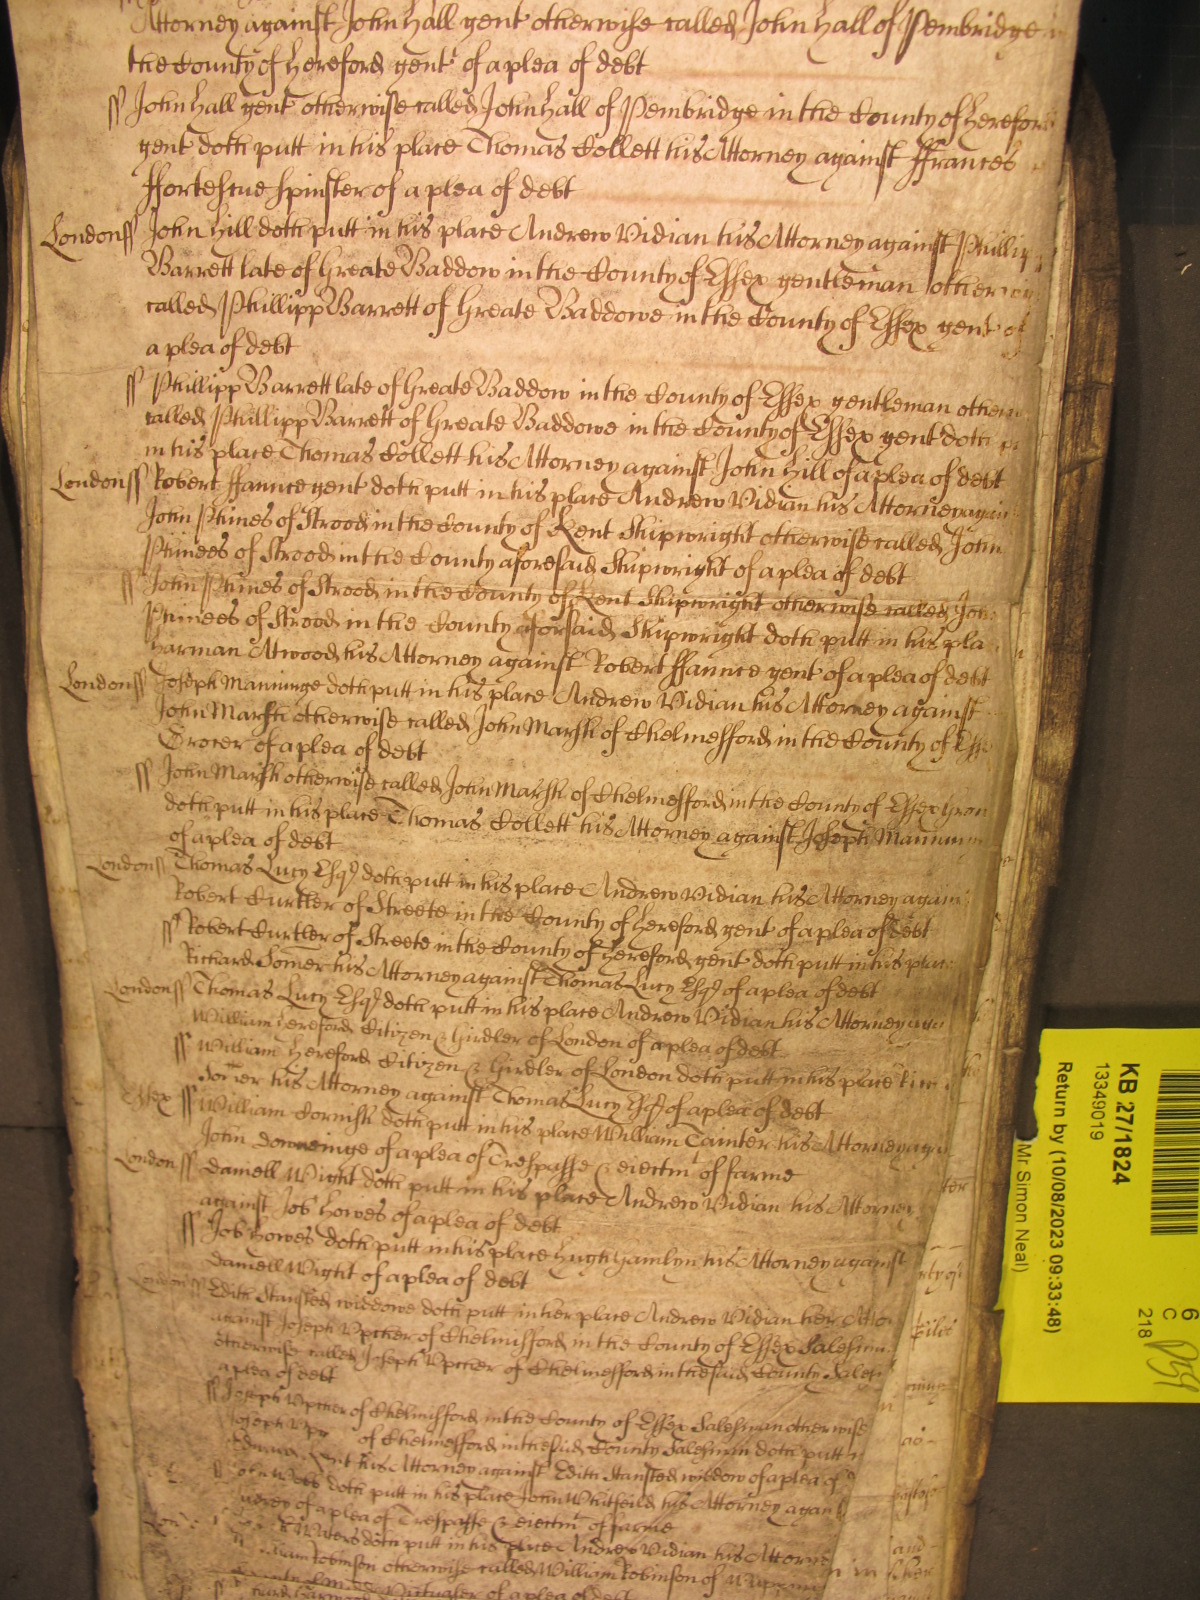 Attorney against John Hall gent otherwise called John Hall of Pembridge
the County of Hereford gent of a plea of debt
ss John Hall gent otherwise called John Hall of Pembridge in the County of Hereford
gent doth putt in his place Thomas Collett his Attorney against ffrances
ffortescue spinster of a plea of debt
London ss John Hill doth putt in his place Andrew Vidian his Attorney against Phillip
Barrett late of Greate Baddow in the County of Essex gentleman other
called Phillipp Barrett of Greate Baddowe in the County of Essex gent of
a plea of debt
ss Phillipp Barrett late of Greate Baddow in the County of Essex gentleman otherw
called Phillipp Barrett of Greate Baddowe in the County of Essex gent doth
in his place Thomas Collett his Attorney against John Hill of a plea of debt
London ss Robert ffaunce gent doth putt in his place Andrew Vidian his Attorney again
John Phines of Strood in the County of Kent Shipwright otherwise called John
Phinees of Strood in the County aforesaid Shipwright of a plea of debt
ss John Phines of Strood in the County of Kent Shipwright otherwise called Joh
Phinees of Strood in the County aforsaid Shipwright doth putt in his pla
Harman Atwood his Attorney against Robert ffaunce gent of a plea of debt
London ss Joseph Manninge doth putt in his place Andrew Vidian his Attorney against
John Marsh otherwise called John Marsh of Chelmesford in the County of Ess
Grocer of a plea of debt
ss John Marsh otherwise called John Marsh of Chelmesford in the County of Essex
doth putt in his place Thomas Collett his Attorney against Joseph Mannin
of a plea of debt
London ss Thomas Lucy Esqr doth putt in his place Andrew Vidian his Attorney again
Robert Curtler of Streete in the County of Hereford gent of a plea of debt
ss Robert Curtler of Streete in the County of Hereford gent doth putt in his place
Richard Somer his Attorney against Thomas Lucy Esqr of a plea of debt
London ss Thomas Lucy Esqr doth putt in his place Andrew Vidian his Attorney aga
William Hereford Citizen & Girdler of London of a plea of debt
ss William Hereford Citizen & Girdler of London doth putt in his place
Somer his Attorney against Thomas Lucy Esqr of a plea of debt
Essex ss William Cornish doth putt in his place William Tainter his Attorney aga
John of a plea of Trespasse & eiectmt of farme
London ss Daniell Wight doth putt in his place Andrew Vidian his Attorney
against Job Howes of a plea of debt
ss Job Howes doth putt in his place Hugh Hamlyn his Attorney against
Daniell Wight of a plea of debt
London ss Edith Stansted widdowe doth putt in her place Andrew Vidian her Attor
against Joseph Vpcher of Chelmisford in the County of Essex Salesm
otherwise called Joseph Vpcher of Chelmesford in the said County Sales
a plea of debt
ss Joseph Vpcher of Chelmisford in the County of Essex Salesman otherwise
Joseph Vp of Chelmesford in the said County Salesman doth putt
Kent his Attorney against Edith Stansted widdow of a plea of
Webb doth putt in his place John Whitfeild his Attorney against
of a plea of Trespasse & eiectmt of farme
Waters doth putt in his place Andrew Vidian his Attorne
Robinson otherwise called William Robinson of
Victualer of a plea of debt
KB 27/1824
13349019
Return by (10/08/2023 09:33:48)
Mr Simon Neal)
6
C
218